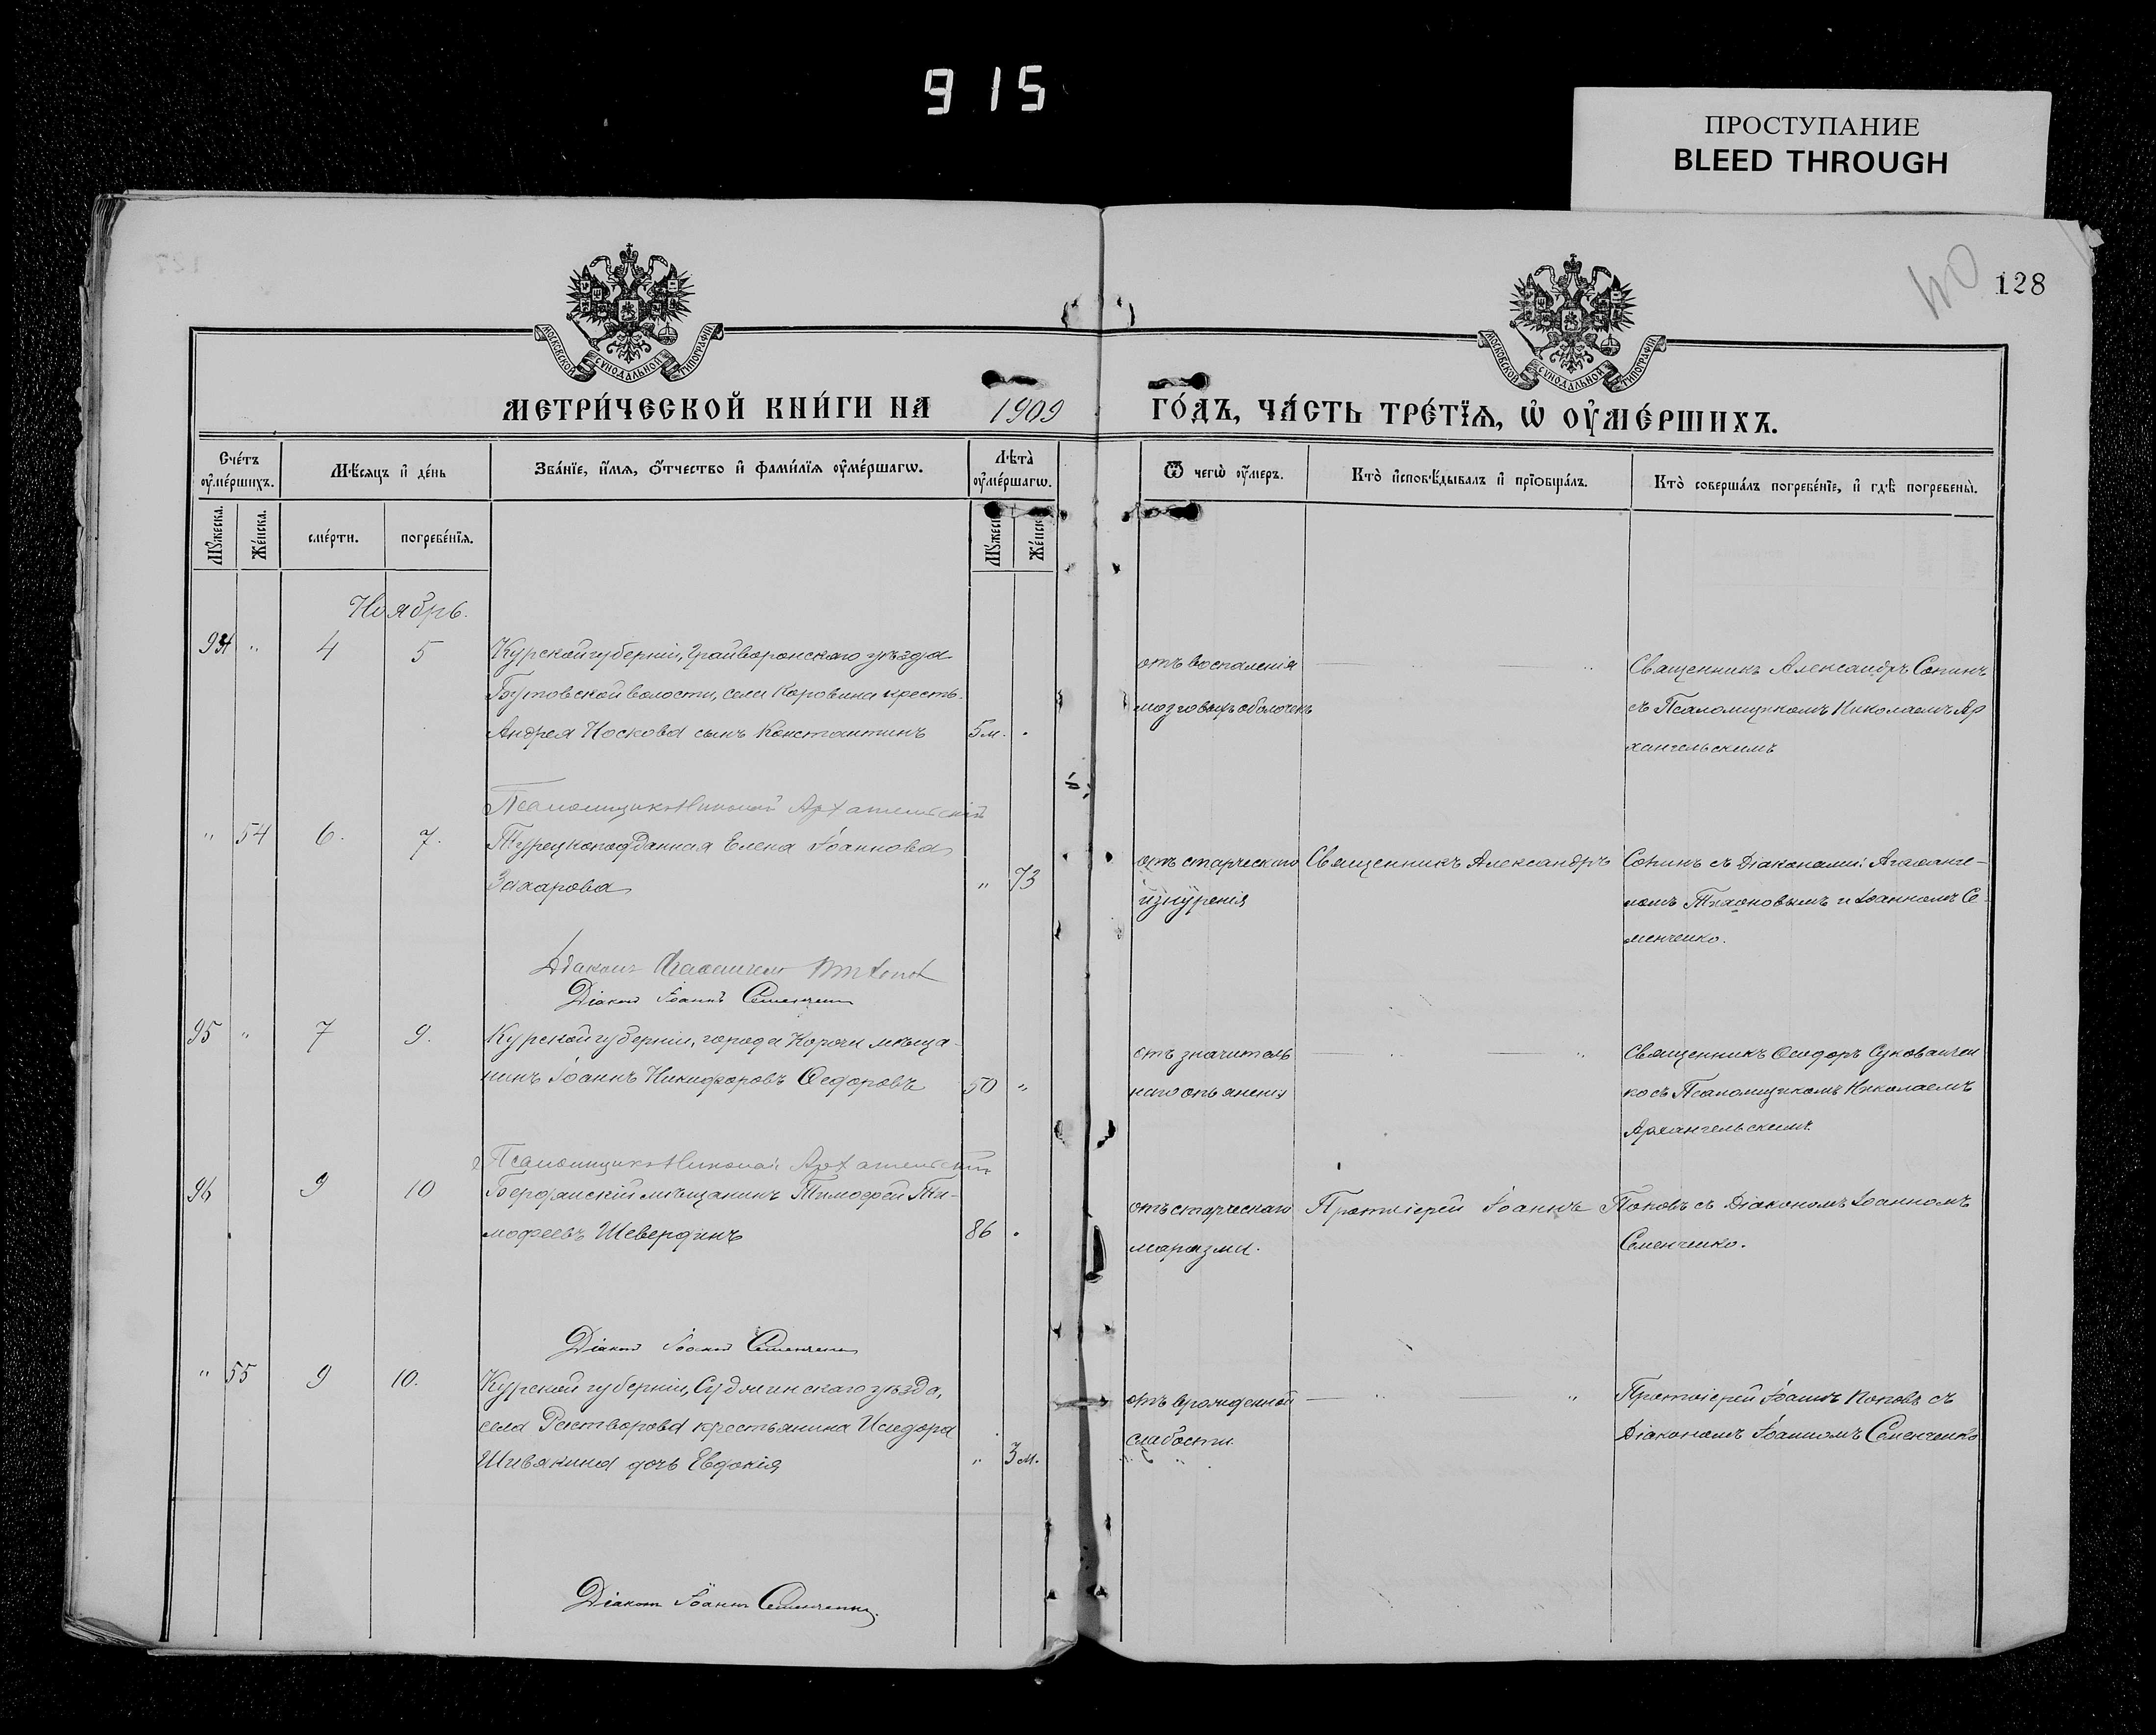 915
ПРОСТУПАНИЕ
BLEED THROUGH
128
МОСКОВСКОЙ СѴНОДАЛЬНОЙ ТИПОГРАФІИ
МОСКОВСКОЙ СѴНОДАЛЬНОЙ ТИПОГРАФІИ
МЕТРИ́ЧЕСКОЙ КНИ́ГИ НА 1909 ГО́ДЪ, ЧА́СТЬ ТРЕ́ТЇѦ, Ѡ҆ ОУ҆МЕ́РШИХЪ.
Сче́тъ оу҆ме́ршихъ.
Мѣ́сѧцъ и҆ де́нь
Зва́нїе, и҆́мѧ, ѻ҆́тчество и҆ фами́лїѧ оу҆ме́ршагѡ.
Лѣта̀ оу҆ме́ршагѡ.
Ѿ чегѡ̀ оу҆́меръ.
Кто̀ и҆сповѣ́дывалъ и҆ прїѡбща́лъ.
Кто̀ соверша́лъ погребе́нїе, и҆ гдѣ̀ погребены̀.
Мꙋ́жеска.
Же́нска.
сме́рти.
погребе́нїѧ.
Мꙋ́жеск
Же́нск
Ноябрь.
94 " 4 5 Курской губерніи, Грайворонскаго уѣзда
Бутовской волости, села Коровина кресть.
Андрея Носкова сынъ Константинъ 5 м.
отъ воспаленія
мозговыхъ оболочекъ
Священникъ Александръ Сопинъ
съ Псаломщикомъ Николаемъ Ар
хангельскимъ
Псаломщикъ Николай Архангельскій
" 54 6. 7. Турецкоподданная Елена Іоаннова
Захарова " 73
отъ старческаго Священникъ Александръ Сопинъ съ Діаконами: Агаѳанге-
изнуренія
ломъ Тихоновымъ и Іоанномъ Се
менченко.
Діаконъ
Діаконъ Іоаннъ Семенченко
95 " 7 9. Курской губерніи, города Корочи мѣща-
нинъ Іоаннъ Никифоровъ Ѳедоровъ 50 "
отъ значитель
наго опьянения
Священникъ Ѳеодоръ
ко съ Псаломщикомъ Николаемъ
Архангельскимъ.
Псаломщикъ Николай Архангельскій
96 9 10 Бердянскій мѣщанинъ Тимоѳей Ти-
моѳеевъ Шевердинъ 86
отъ старческаго Протоіерей Іоаннъ Поповъ съ Діакономъ Іоанномъ
маразма.
Семенченко.
Діаконъ Іоаннъ Семенченко
" 55 9 10. Курской губерніи, Суджинскаго уѣзда,
села Растворова крестьянина Исидора
Шивякина дочь Евдокія " 3 м.
отъ врожденной
слабости.
Протоіерей Іоаннъ Поповъ съ
Діакономъ Іоанномъ Семенченко
Діаконъ Іоаннъ Семенченко.